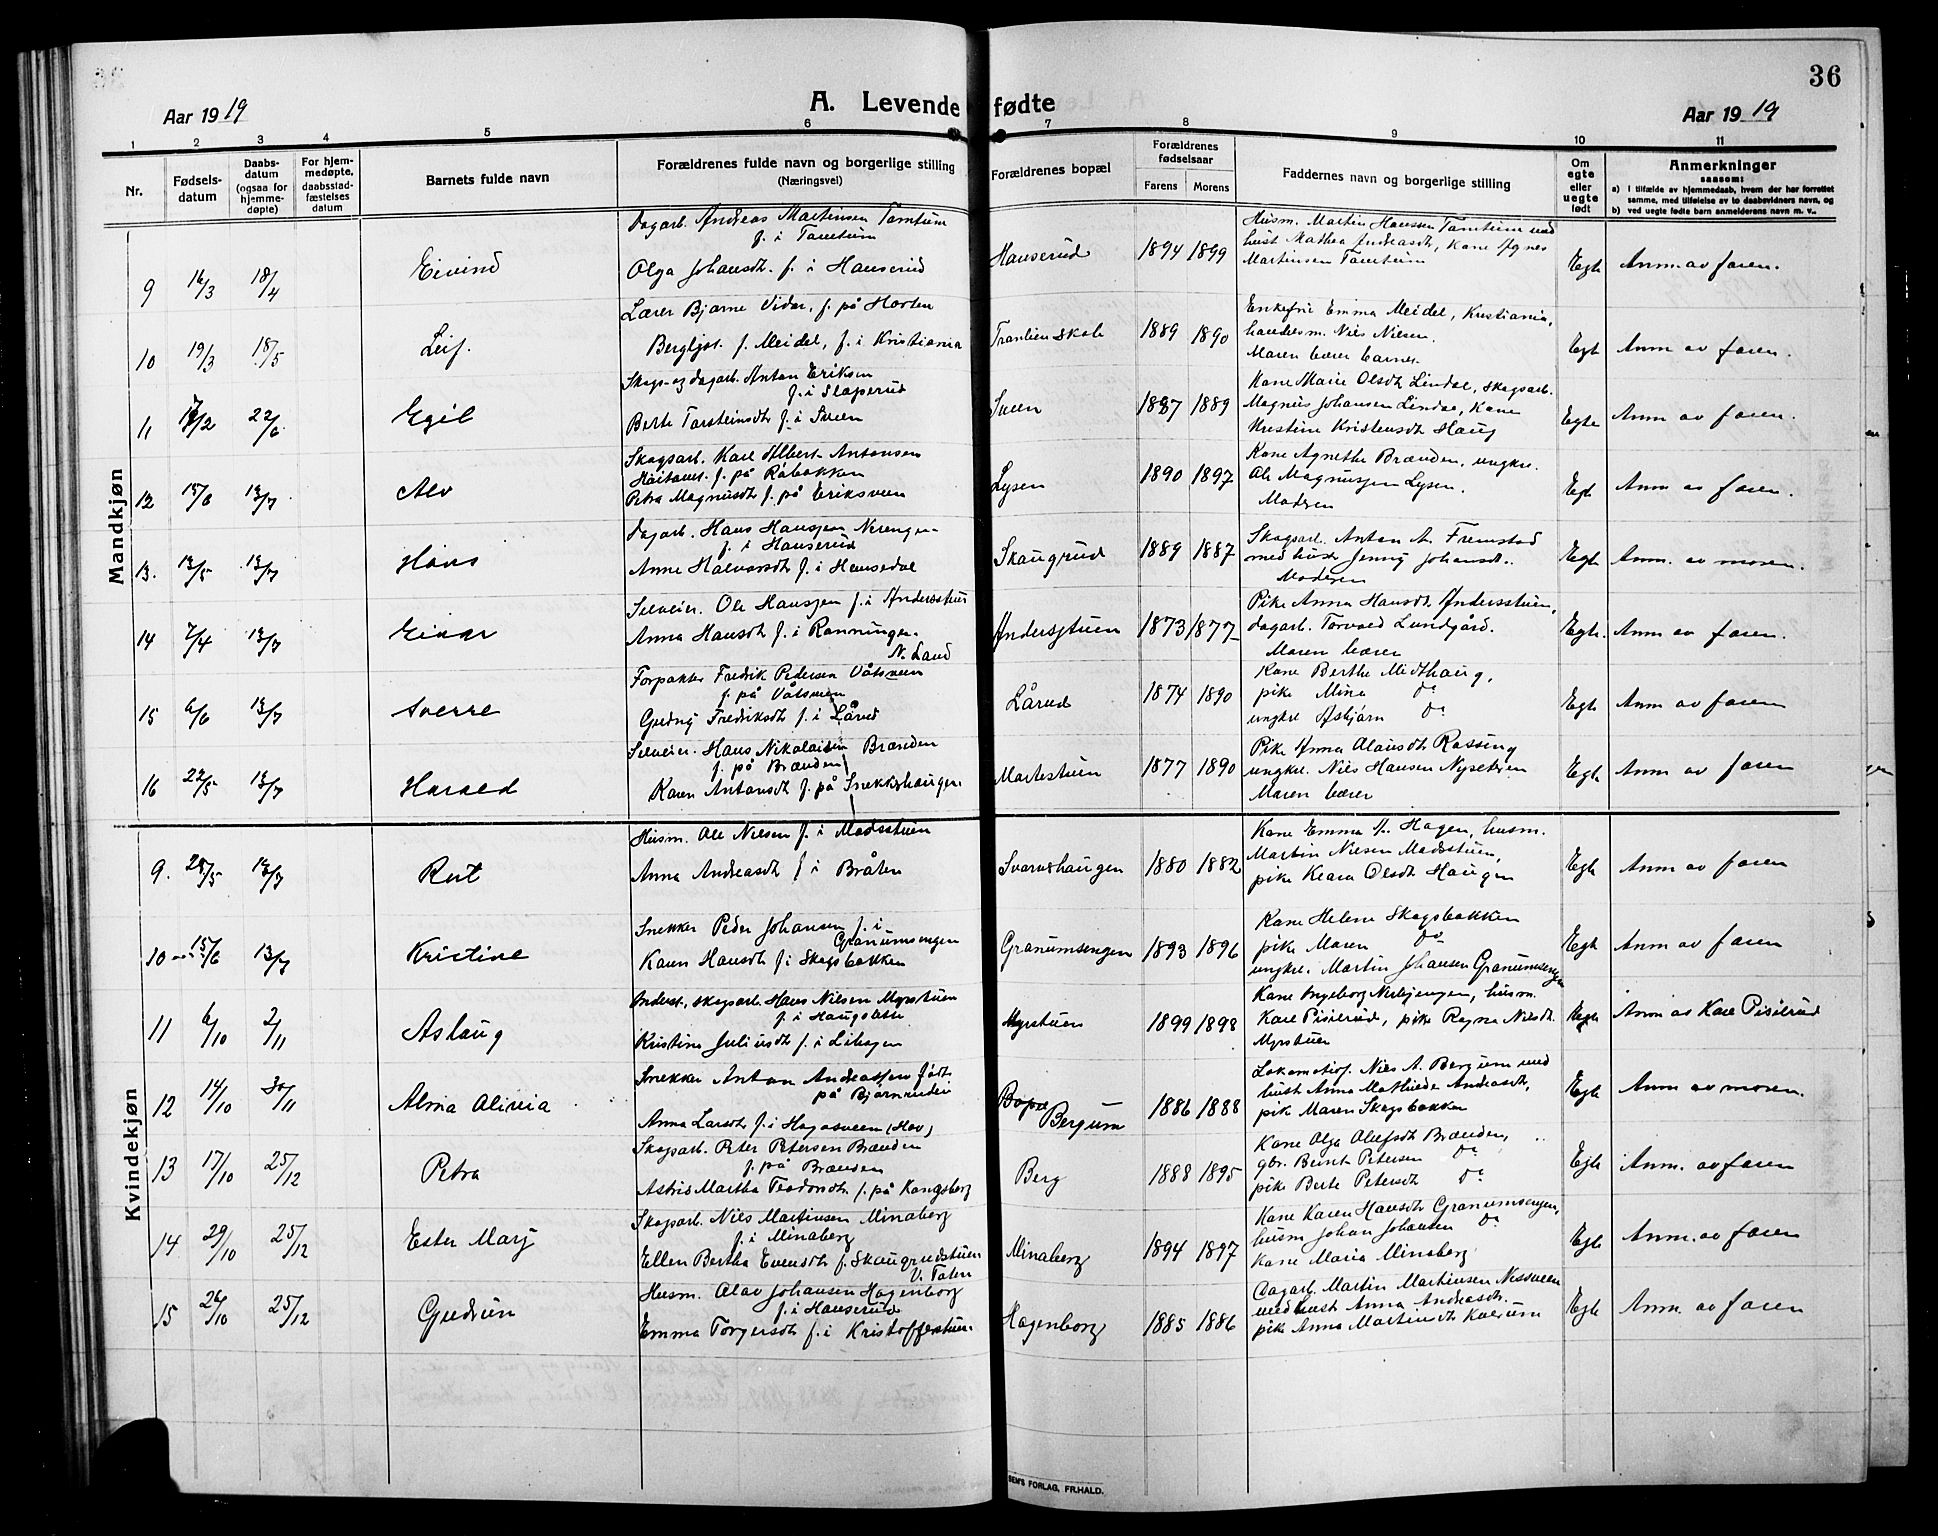 36
Aar 1919
A. Levende fødte
Aar 1919
1 2 3 4 5 6 7 8 9 10 11
Nr.
Fødselsdatum
Daabsdatum (ogsaa for hjemmedøpte)
For hjemmedøpte, daabsstadfæstelses datum
Barnets fulde navn
Forældrenes fulde navn og borgerlige stilling
(Næringsvei)
Forældrenes bopæl
Forældrenes fødselsaar
Farens Morens
Faddernes navn og borgerlige stilling
Om egte eller uegte født
Anmerkninger
saasom:
a) i tilfælde av hjemmedaab, hvem der har forrettet samme, med tilføielse av to daabsvidners navn, og
b) ved uegte fødte barn anmelderens navn m. v..
Mandkjøn
Dagarb. Andreas Martinsen Tamtum
f. i Tamtum
9 16/3 18/4 Eivind Olga Johansdt. f. i Hauserud
Hauserud 1894 1899
Husm. Martin Hanssen Tamtum med
hust Mathea Andreasdt, Kone Agnes
Martinsen Tamtum
Egte Anm. av faren.
Lærer Bjarne Vidar, f. på Horten
10 19/3 18/5 Leif. Bergljot f. Meidel, f. i Kristiania
Tranlien skole 1889 1890
Enkefru Emma Meidel, Kristiania,
handelsm. Nils Nilsen.
Moren bærer barnet.
Egte Anm av faren.
Skogs- og dagarb. Anton Eriksen
f. i Slaperud
11 7/2 22/6 Egil Berte Torsteinsdt f. i Sveen
Sveen 1887 1889
Kone Marie Olsdt Lindal, skogsarb.
Magnus Johansen Lindal, Kone
Kristine Kristensdt Haug
Egte Anm av faren.
Skogsarb. Karl Albert Antonsen
f. på Råbakken
12 15/6 13/7 Alv Petra Magnusdt f. på Eriksveen
Lysen 1890 1897
Kone Agnethe Brænden, ungkr.
Ole Magnussen Lysen.
Moderen
Egte Anm av faren.
Dagarb. Hans Hanssen Nerengen
f. i Hauserud
13. 13/5 13/7 Hans Anne Halvorsdt f. i Hemsedal
Skaugrud 1889 1887
Skogsarb. Anton A. Fremstad
med hust Jenny Johansdt.
Moderen
Egte Anm. av moren.
Selveier. Ole Hanssen f. i Andersstuen
14 7/4 13/7 Einar Anna Hansdt f. i Rønningen
N. Land
Andersstuen 1873 1877
Pike Anna Hansdt Andersstuen,
dagarb. Torvald Lundgård.
Moren bærer
Egte. Anm. av faren.
Forpakter Fredrik Pedersen Våtsveen
f. på Våtsveen
15 6/6 13/7 Sverre Gudny Fredriksdt f. i Lårud
Lårud 1874 1890
Kone Berthe Midthaug,
pike Mina do
ungkr Asbjørn do
Egte Anm av faren
Selveier. Hans Nikolaisen Brænden
f. på Brænden
16 22/5 13/7 Harald Karen Antonsdt f. på Snekkerhaugen
Martestuen 1877 1890
Pike Anna Olausdt Røssing
ungkr. Nils Hansen Nyseteren
Moren bærer
Egte Anm av faren
Kvindekjøn
Husm. Ole Nilsen f. i Madsstuen
9. 28/5 13/7 Rut Anna Andreasdt f i Bråten
Svarveshaugen 1880 1882
Kone Emma A. Hagen, husm.
Martin Nilsen Madsstuen,
pike Klara Olsdt Haugen
Egte Anm av faren
Snekker Peder Johansen f. i
Granumsengen
10 15/6 13/7 Kristine Karen Hansdt f i Skogsbakken
Granumsengen 1893 1896
Kone Helene Skogsbakken
pike Maren do
ungkr. Martin Johansen Granumsengen
Egte Anm av faren
Inderst, skogsarb. Hans Nilsen Myrstuen
f. i Haugsletta
11 6/10 2/11 Aslaug Kristine Juliusdt f. i Lihagen
Myrstuen 1899 1898
Kone Ingeborg Nerlzengen, husm.
Karl Pisilrud, pike Ragna Nilsdt
Myrstuen
Egte Anm av Karl Pisilrud
Snekker Anton Andreassen født
på Bjørnerudei
12 14/10 30/11 Alma Alivia Anna Larsdt f. i Hagasveen (Hov)
Bergum 1886 1888
Lokomotivf. Nils A. Bergum med
hust Anna Mathilde Andreasdt,
pik Maren Skogsbakken
Egte Anm av moren.
Skogsarb. Peter Petersen Brænden
f. på Brænden
13 17/10 25/12 Petra Astrid Martha Teodorsdt f. på Kongsberg
Berg 1888 1895
Kone Olga Olufsdt Brænden,
gbr. Bernt Petersen do
pike Berte Petersdt do
Egte Anm. av faren
Skogsarb. Nils Martinsen Minaberg
f. i Minaberg
14 29/10 25/12 Ester Mary Ellen Bertha Evensdt f. Skaugrudstuen
V. Toten
Minaberg 1894 1897
Kone Karen Hansdt Granumsengen,
husm Johan Johansen do
Kone Maria Minaberg
Egte Anm. av faren
Husm. Olav Johansen Hagenborg
f. i Hauserud
15 26/10 25/12 Gudrun Emma Torgersdt f. i Kristofferstuen
Hagenborg 1885 1886
Dagarb. Martin Martinsen Nesveen
med hust Anna Andreasdt.
pike Anna Martinsdt Kalrum
Egte Anm. av faren
SEN'S FORLAG, FR.HALD.